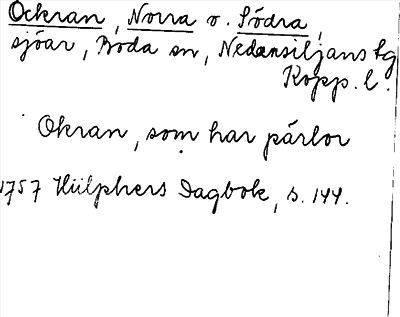 Ockran, Norra o. Södra,
sjöar, Boda sn, Nedansiljans fg
Kopp. l.
Okran, som har pärlor
1757 Hülphers Dagbok, s. 144.